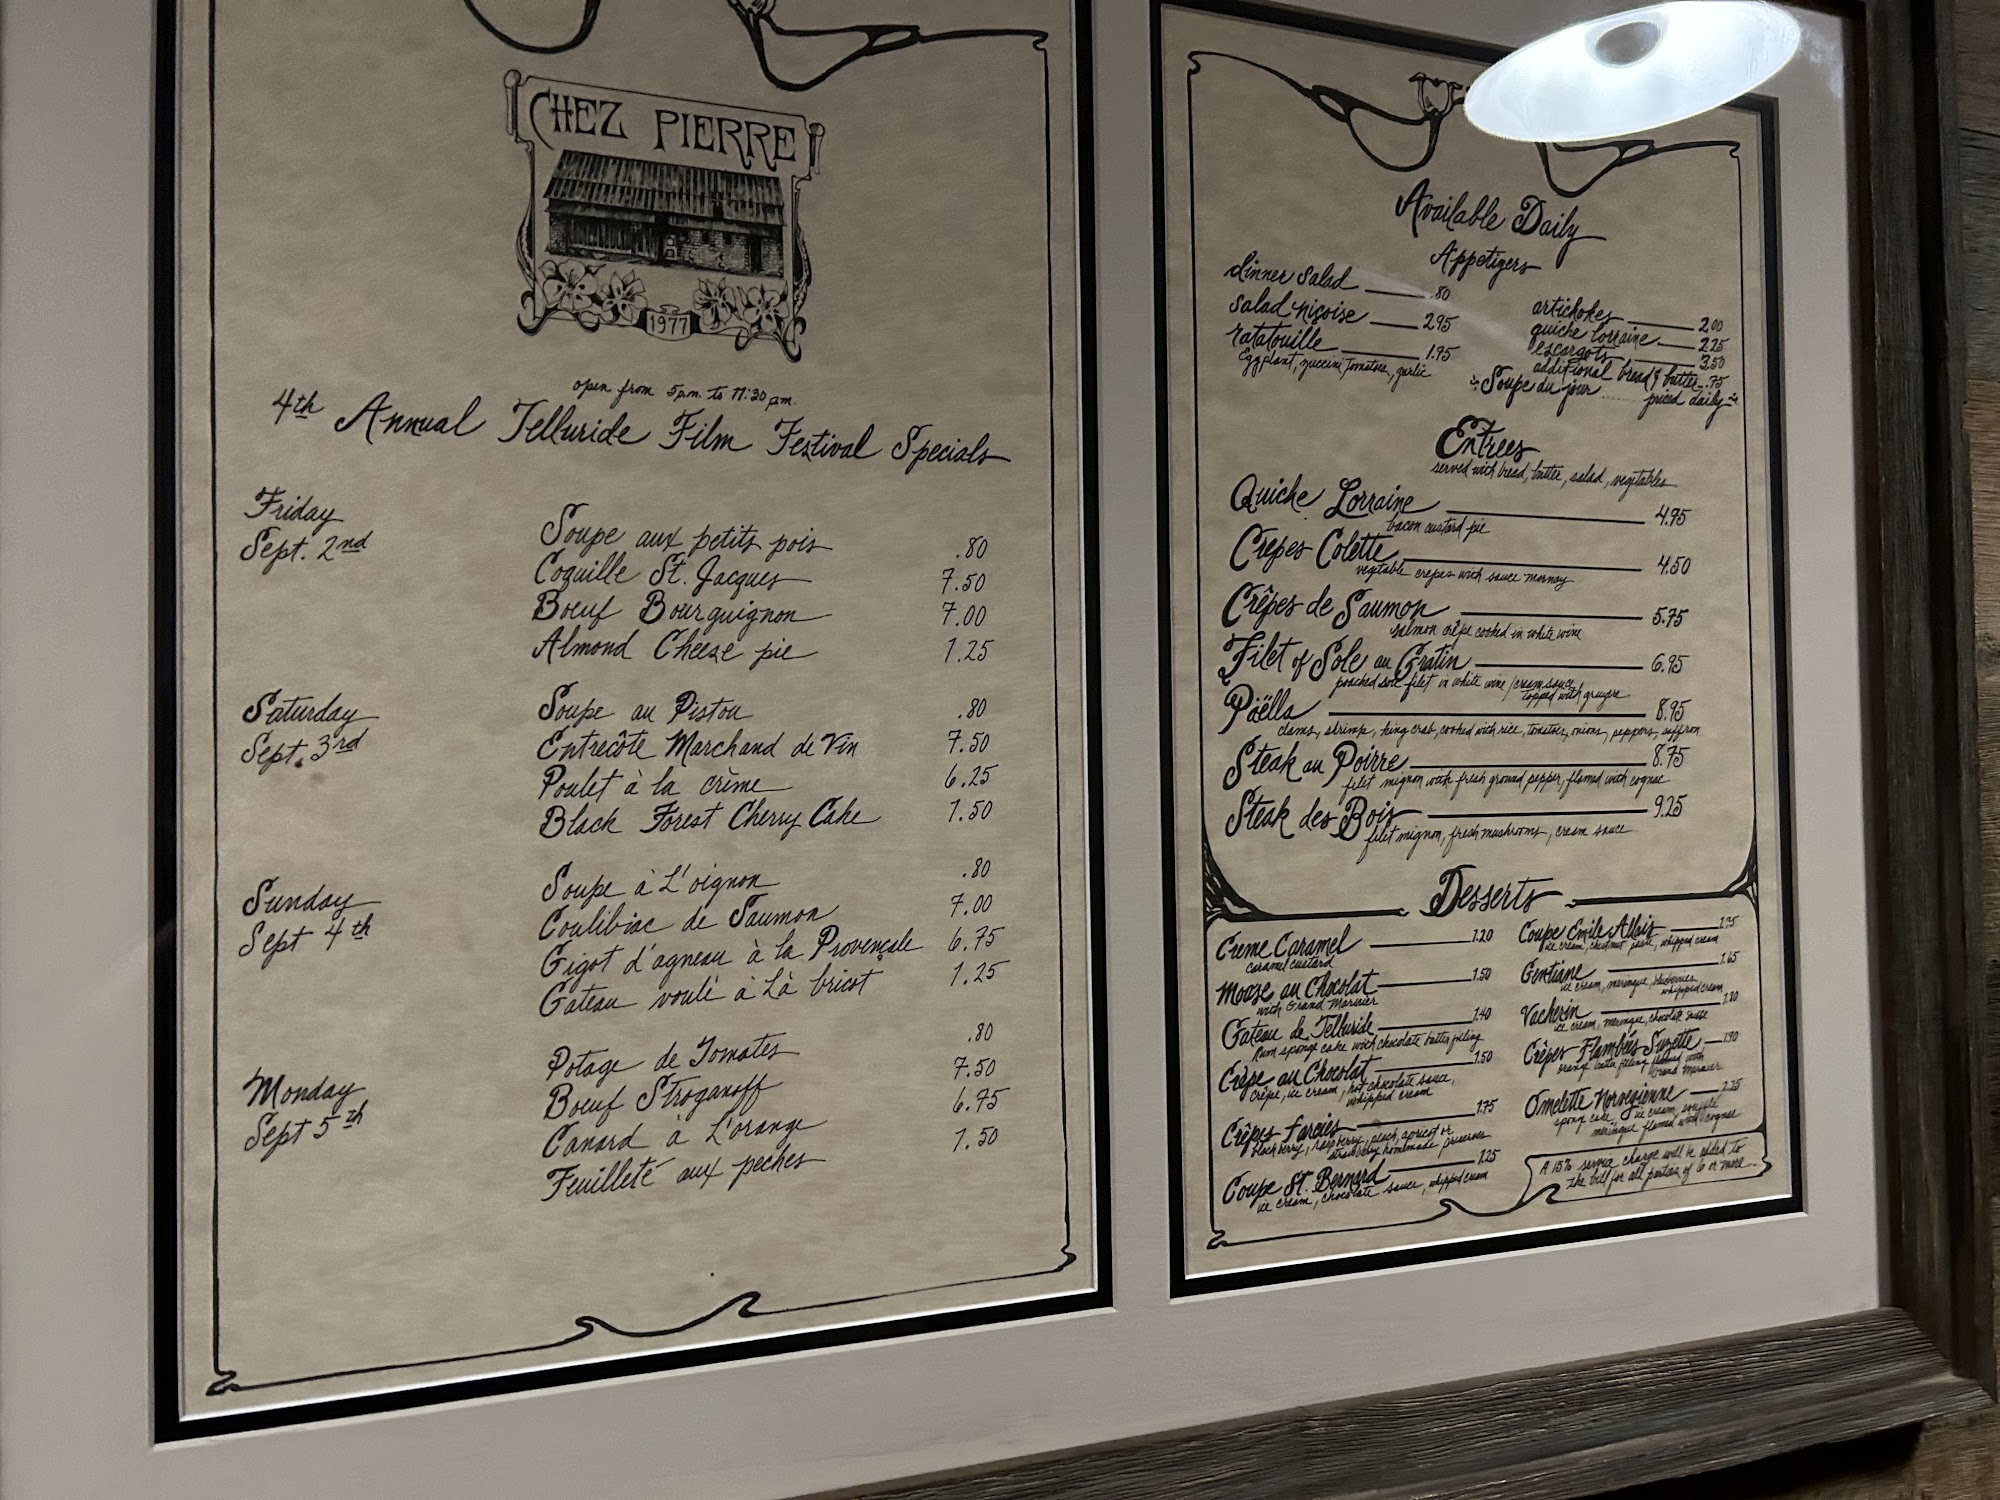 CHEZ PIERRE
1977
open from 5p.m. to 11:30 p.m.
4th Annual Telluride Film Festival Specials
Friday
Sept. 2nd
Soupe aux petits pois .80
Coquille St. Jacques 7.50
Boeuf Bourguignon 7.00
Almond Cheese pie 1.25
Saturday
Sept. 3rd
Soupe au Pistou .80
Entrecôte Marchand de Vin 7.50
Poulet à la crème 6.25
Black Forest Cherry Cake 1.50
Sunday
Sept 4th
Soupe à L'oignon .80
Coulibiac de Saumon 7.00
Gigot d'agneau à la Provençale 6.75
Gateau voulé à Là bricot 1.25
Monday
Sept 5th
Potage de Tomates .80
Boeuf Stroganoff 7.50
Canard à L'orange 6.95
Feuilleté aux peches 1.50
Available Daily
Appetizers
dinner salad .80
salad niçoise 2.95
ratatouille 1.95
Eggplant, zuccini, tomatoes, garlic
artichokes 2.00
quiche lorraine 2.25
escargots 3.50
additional bread & butter .75
Soupe du jour ....... priced daily
Entrees
served with bread, butter, salad, vegetables
Quiche Lorraine 4.95
bacon custard pie
Crepes Colette 4.50
vegetable crepes with sauce mornay
Crêpes de Saumon 5.75
salmon crêpe cooked in white wine
Filet of Sole au Gratin 6.95
poached sole filet in white wine / cream sauce
topped with gruyere
Päella 8.95
clams, shrimp, king crab, cooked with rice, tomatoes, onions, peppers, saffron
Steak au Poivre 8.75
filet mignon with fresh ground pepper, flamed with cognac
Steak des Bois 9.25
filet mignon, fresh mushrooms, cream sauce
Desserts
Creme Caramel 1.20
caramel custard
Moose au Chocolat 1.50
with Grand Marnier
Gateau de Telluride 1.40
Rum sponge cake with chocolate butter filling
Crêpe au Chocolat 1.50
crêpe, ice cream, hot chocolate sauce,
whipped cream
Crêpes Farcies 1.75
blackberry, raspberry, peach, apricot or
strawberry homemade preserves
Coupe St. Bernard 1.25
ice cream, chocolate sauce, whipped cream
Coupe Emile Allais 1.75
ice cream, chestnut paste, whipped cream
Gentiane 1.65
ice cream, meringue, blueberries
whipped cream
Vacherin
ice cream, meringue, chocolate sauce
Crêpes Flambées Suzette 1.90
orange butter filling flamed with
Grand Marnier
Omelette Norvegienne 2.25
sponge cake, ice cream, souffle
meringue flamed with cognac
A 15% service charge will be added to
the bill for all parties of 6 or more.